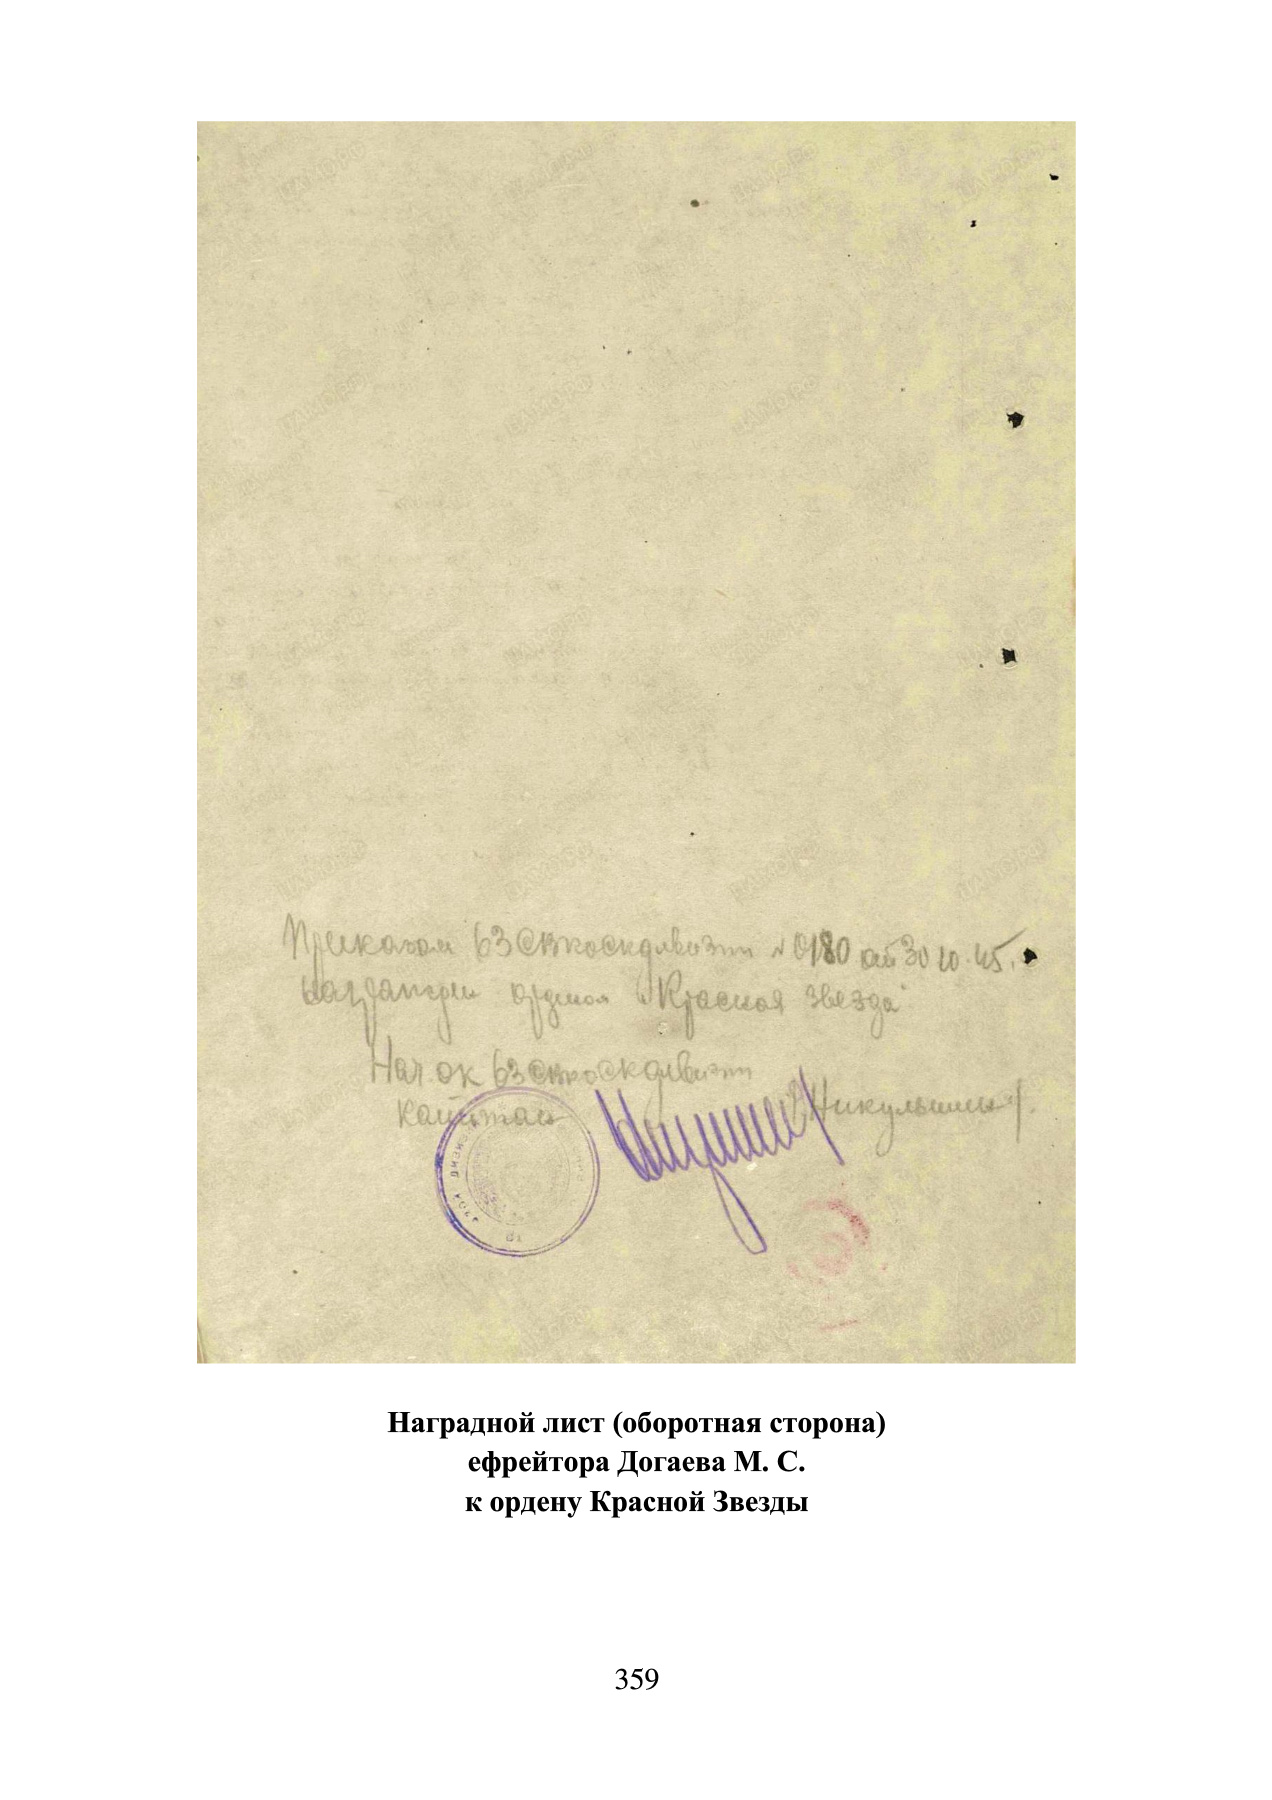 Приказом 63 СВкоскдивизии № 0180 от 30.10.45.
награжден орденом "Красная звезда"
Нач. ок 63 СВкоскдивизии
капитан Никульшин
Наградной лист (оборотная сторона)
ефрейтора Догаева М. С.
к ордену Красной Звезды
359